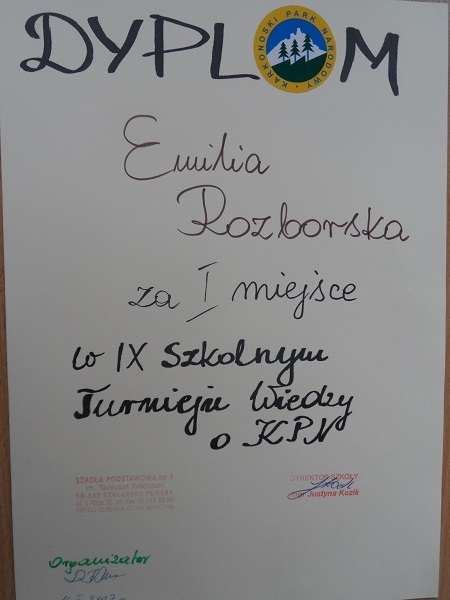 DYPLOM
KARKONOSKI PARK NARODOWY
Emilia
Rozborska
za I miejsce
w IX Szkolnym
Turnieju Wiedzy
o KPN
SZKOŁA PODSTAWOWA nr 1
im. Tadeusza Kościuszki
58-585 SZKLARSKA PORĘBA
DYREKTOR SZKOŁY
mgr Justyna Kozik
Organizator